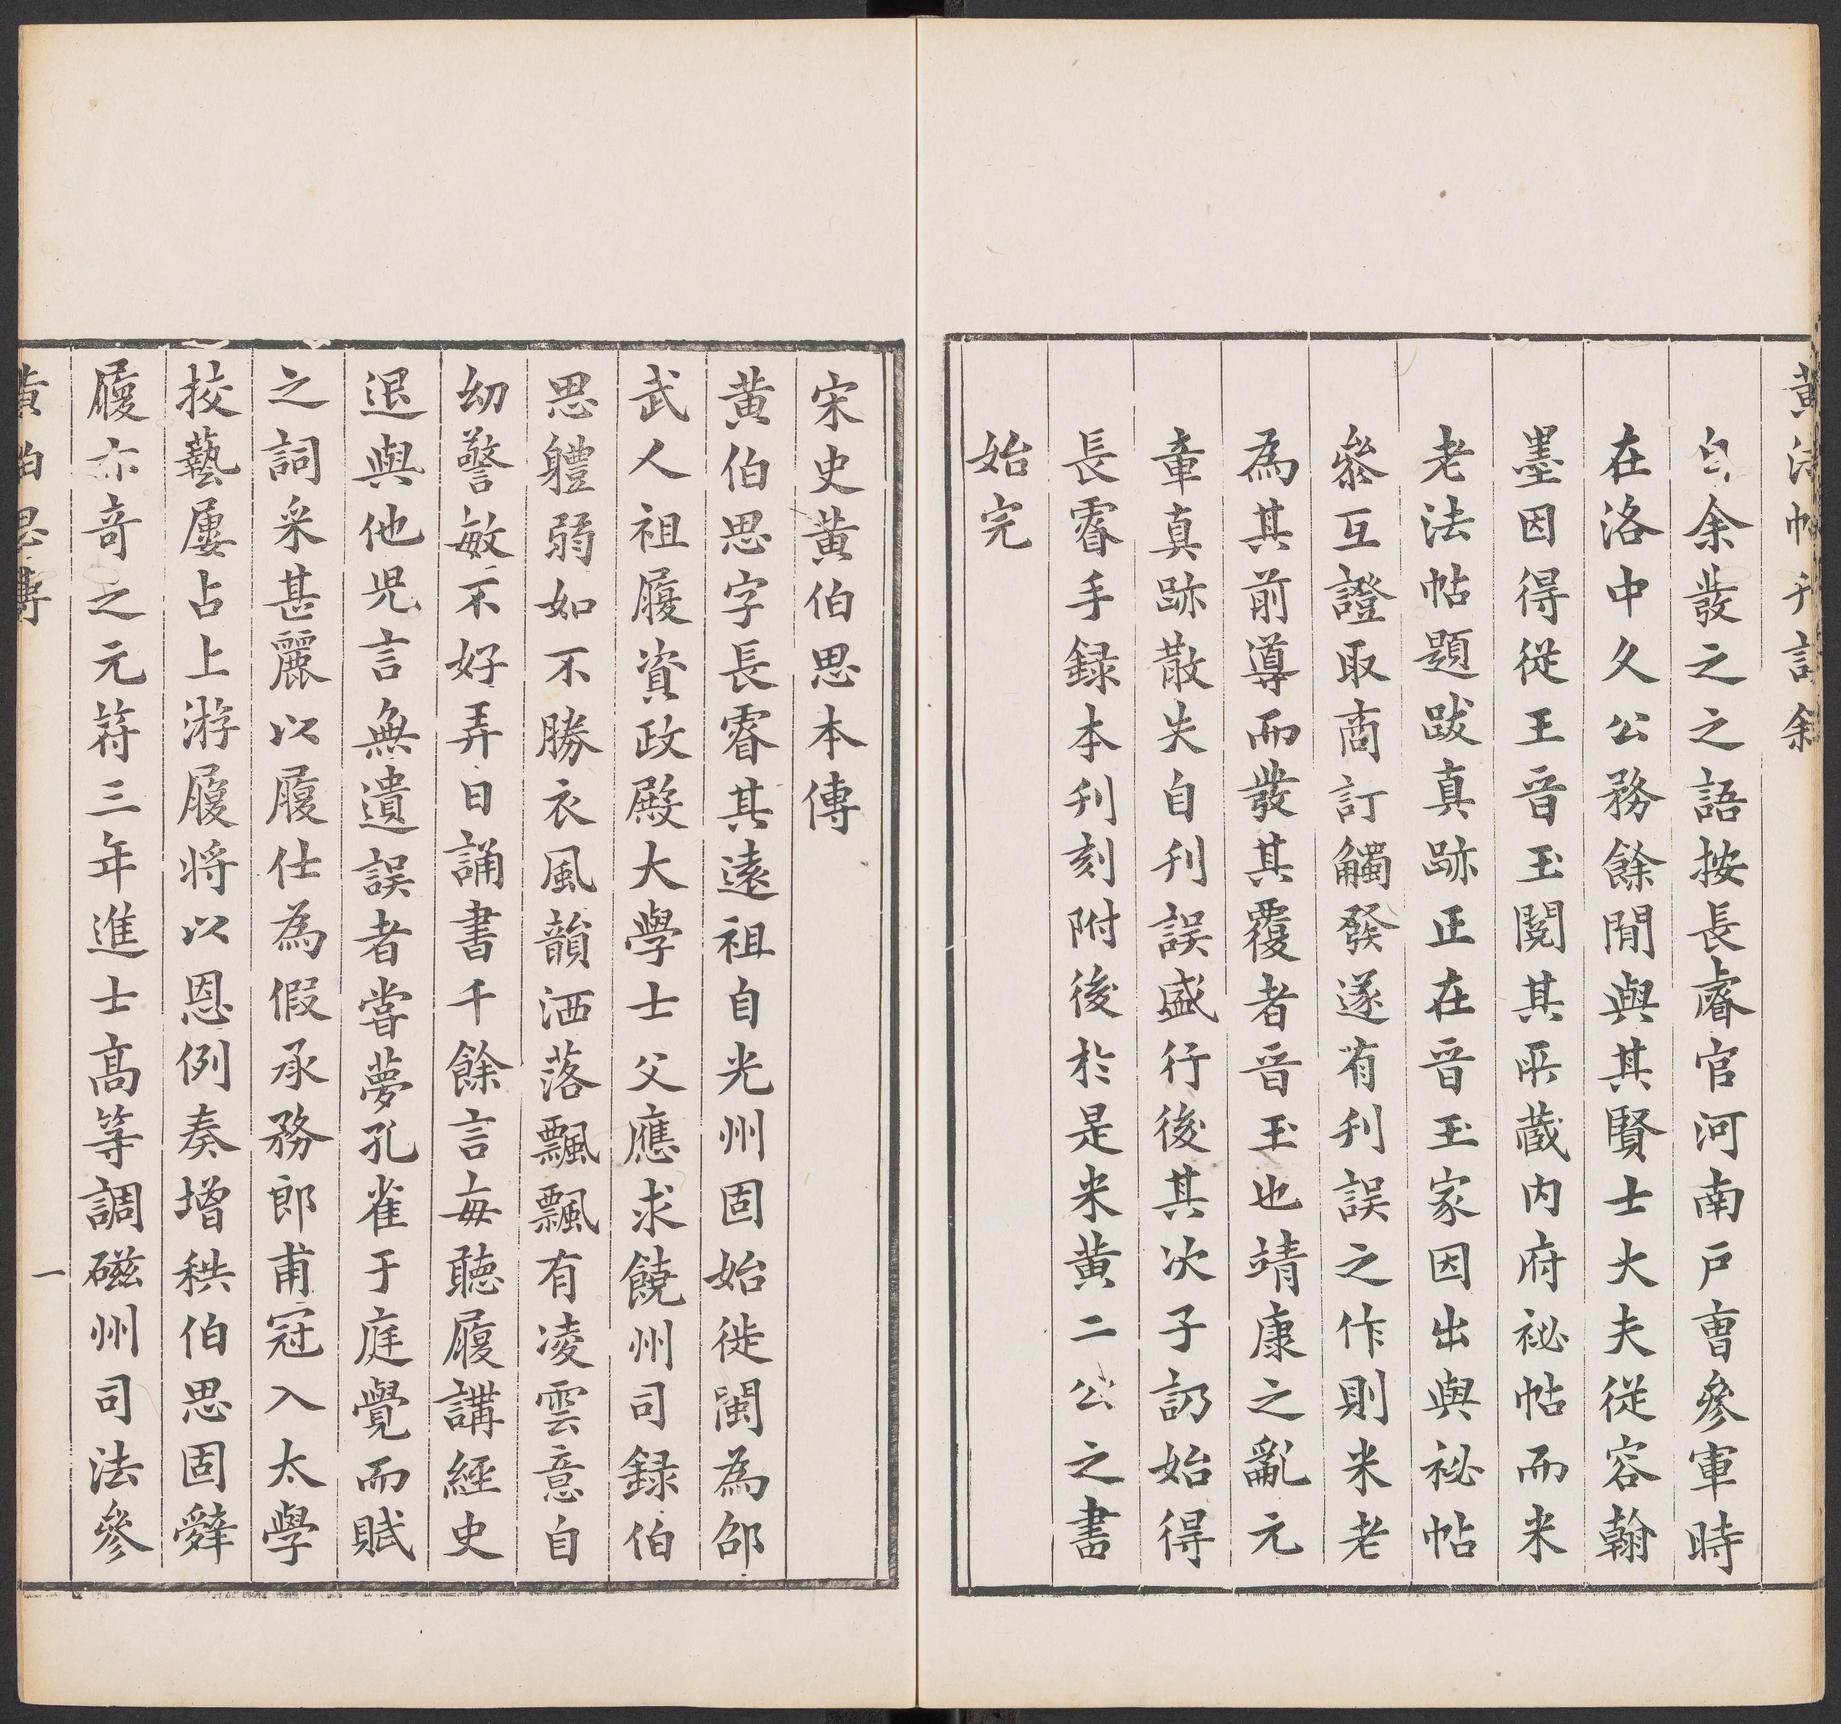 黄法帖刊誤叙
自余發之之語按長睿官河南戶曹參軍時
在洛中久公務餘閒與其賢士大夫從容翰
墨因得從王晉玉閱其所藏内府祕帖而米
老法帖題跋真跡正在晉玉家因出與祕帖
叅互證取商訂觸發遂有刋誤之作則米老
為其前導而發其覆者晉玉也靖康之亂元
章真跡散失自刋誤盛行後其次子訒始得
長睿手録本刋刻附後於是米黄二公之書
始完
宋史黄伯思本傳
黄伯思字長睿其遠祖自光州固始徙閩為邵
武人祖履資政殿大學士父應求饒州司録伯
思體弱如不勝衣風韻洒落飄飄有凌雲意自
幼警敏不好弄日誦書千餘言毎聽履講經史
退與他児言無遺誤者嘗夢孔雀于庭覺而賦
之詞采甚麗以履仕為假承務郎甫冠入太學
挍藝屢占上游履将以恩例奏增秩伯思固辭
履亦竒之元符三年進士高等調磁州司法參
黄伯思傳
一